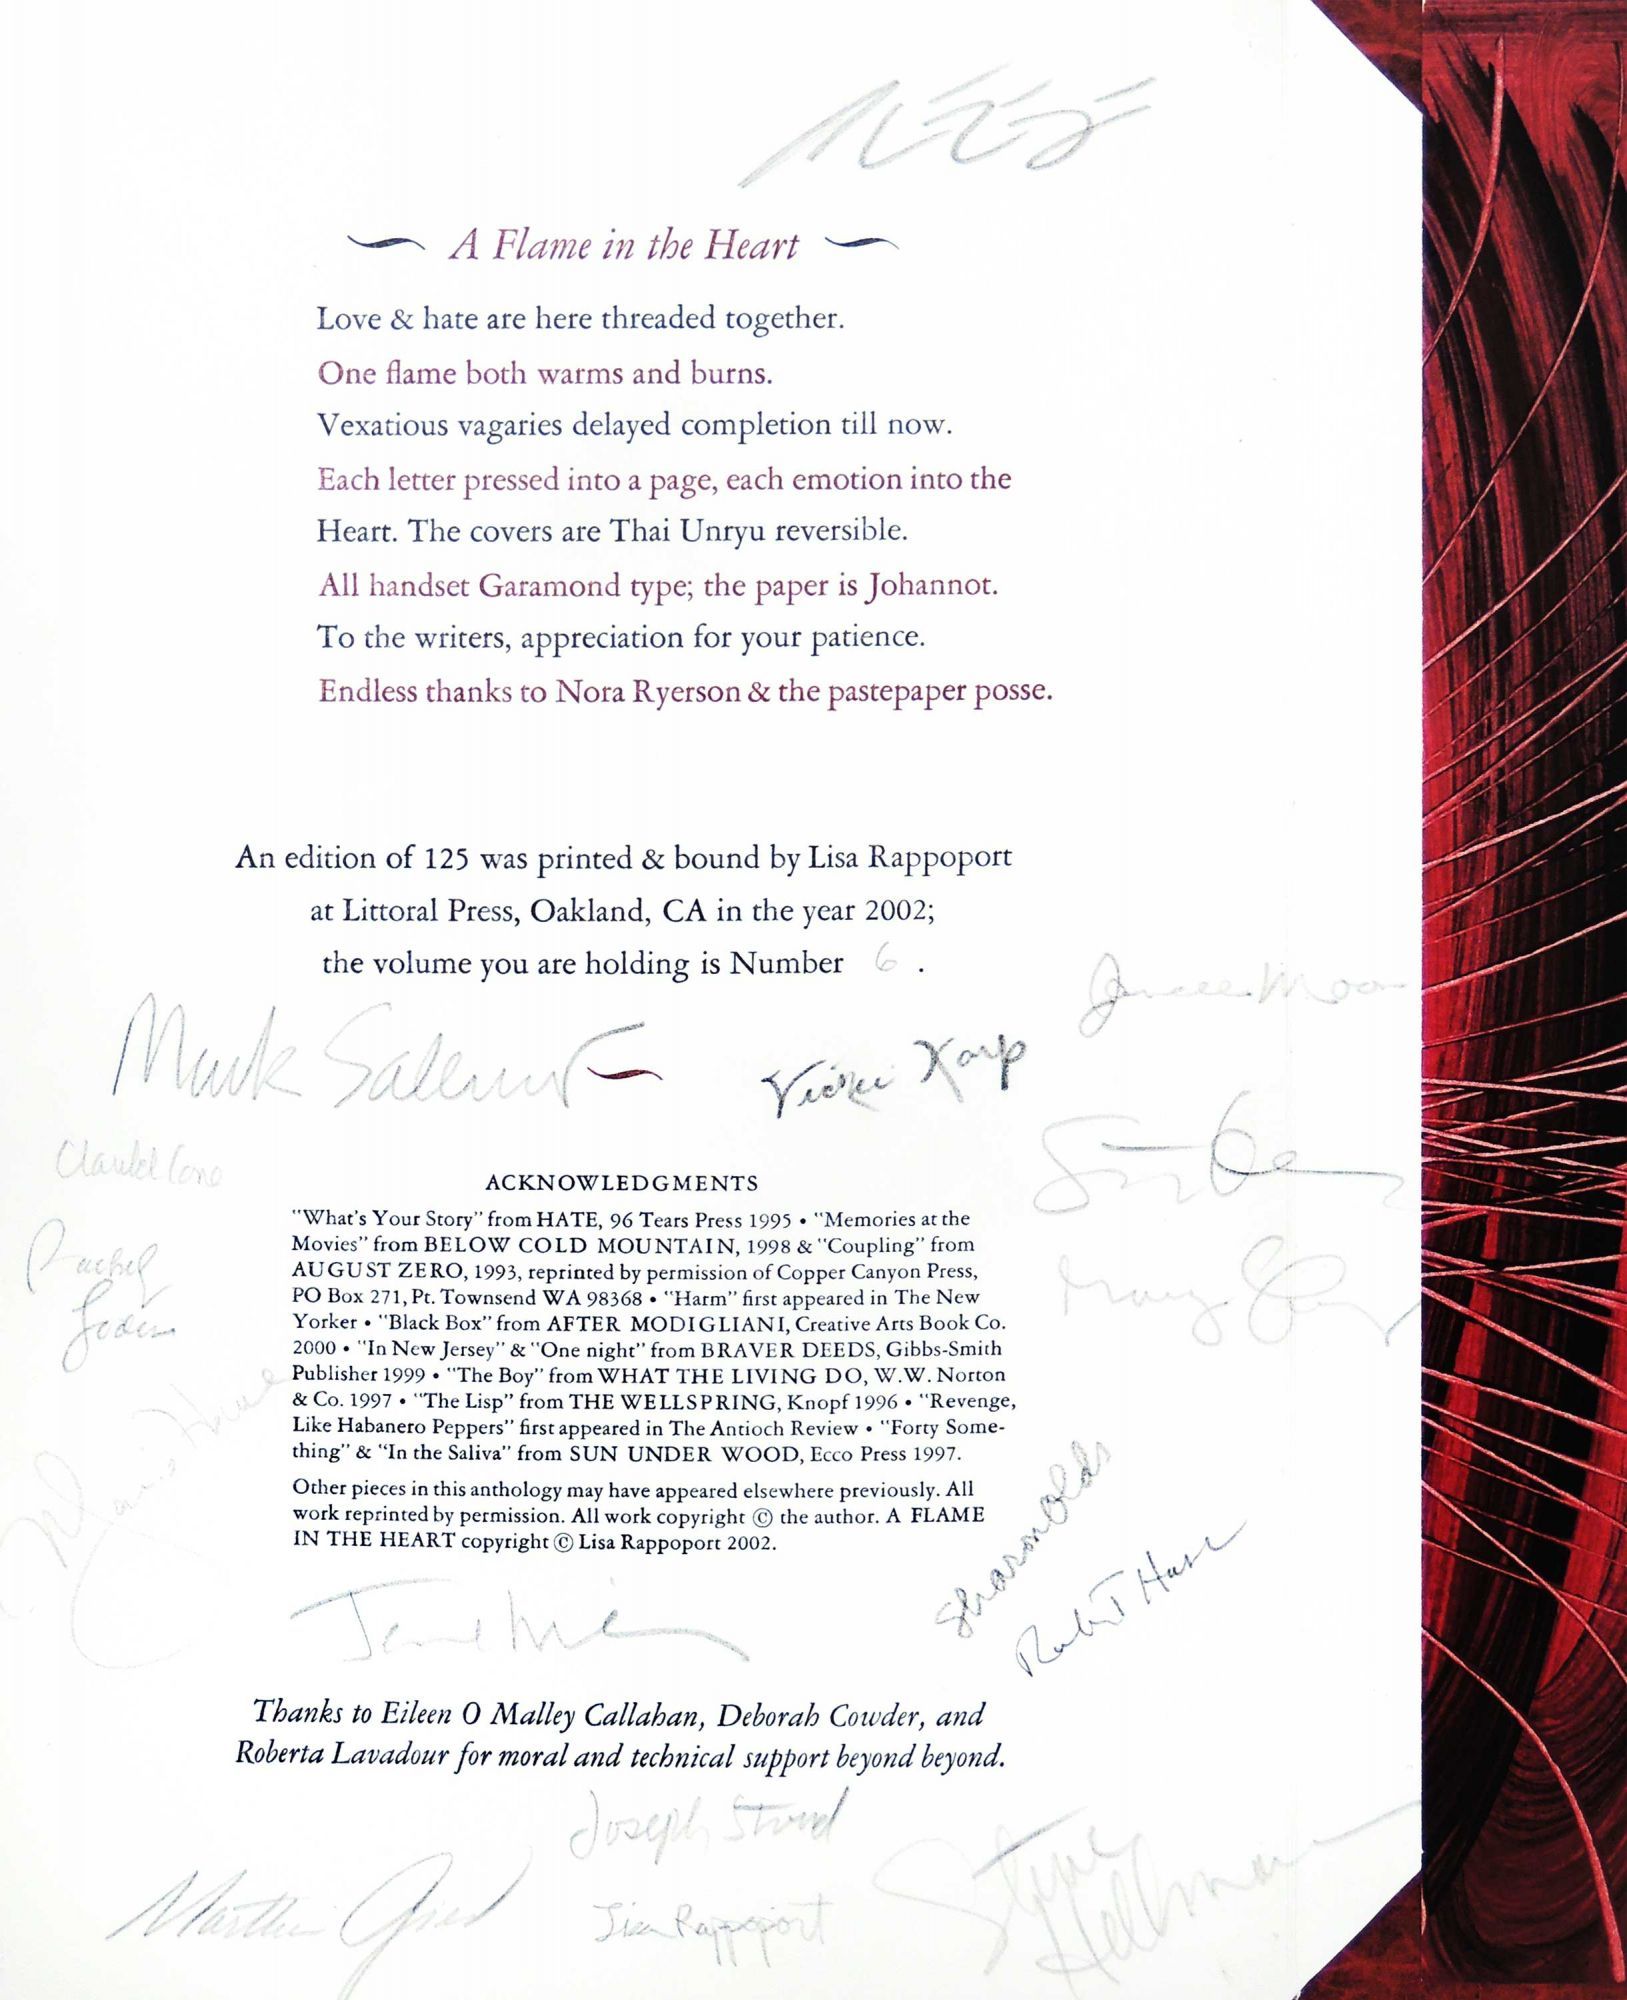 A Flame in the Heart
Love & hate are here threaded together.
One flame both warms and burns.
Vexatious vagaries delayed completion till now.
Each letter pressed into a page, each emotion into the
Heart. The covers are Thai Unryu reversible.
All handset Garamond type; the paper is Johannot.
To the writers, appreciation for your patience.
Endless thanks to Nora Ryerson & the pastepaper posse.
An edition of 125 was printed & bound by Lisa Rappoport
at Littoral Press, Oakland, CA in the year 2002;
the volume you are holding is Number 6 .
Mark Salerno
Vickie Karp
Rachel
Loden
ACKNOWLEDGMENTS
"What's Your Story" from HATE, 96 Tears Press 1995 • "Memories at the
Movies" from BELOW COLD MOUNTAIN, 1998 & "Coupling" from
AUGUST ZERO, 1993, reprinted by permission of Copper Canyon Press,
PO Box 271, Pt. Townsend WA 98368 • "Harm" first appeared in The New
Yorker • "Black Box" from AFTER MODIGLIANI, Creative Arts Book Co.
2000 • "In New Jersey" & "One night" from BRAVER DEEDS, Gibbs-Smith
Publisher 1999 • "The Boy" from WHAT THE LIVING DO, W.W. Norton
& Co. 1997 • "The Lisp" from THE WELLSPRING, Knopf 1996 • "Revenge,
Like Habanero Peppers" first appeared in The Antioch Review • "Forty Some-
thing" & "In the Saliva" from SUN UNDER WOOD, Ecco Press 1997.
Other pieces in this anthology may have appeared elsewhere previously. All
work reprinted by permission. All work copyright © the author. A FLAME
IN THE HEART copyright © Lisa Rappoport 2002.
Sharon Olds
Robert Hass
Thanks to Eileen O Malley Callahan, Deborah Cowder, and
Roberta Lavadour for moral and technical support beyond beyond.
Joseph Stroud
Lisa Rappoport
Steve
Hellman